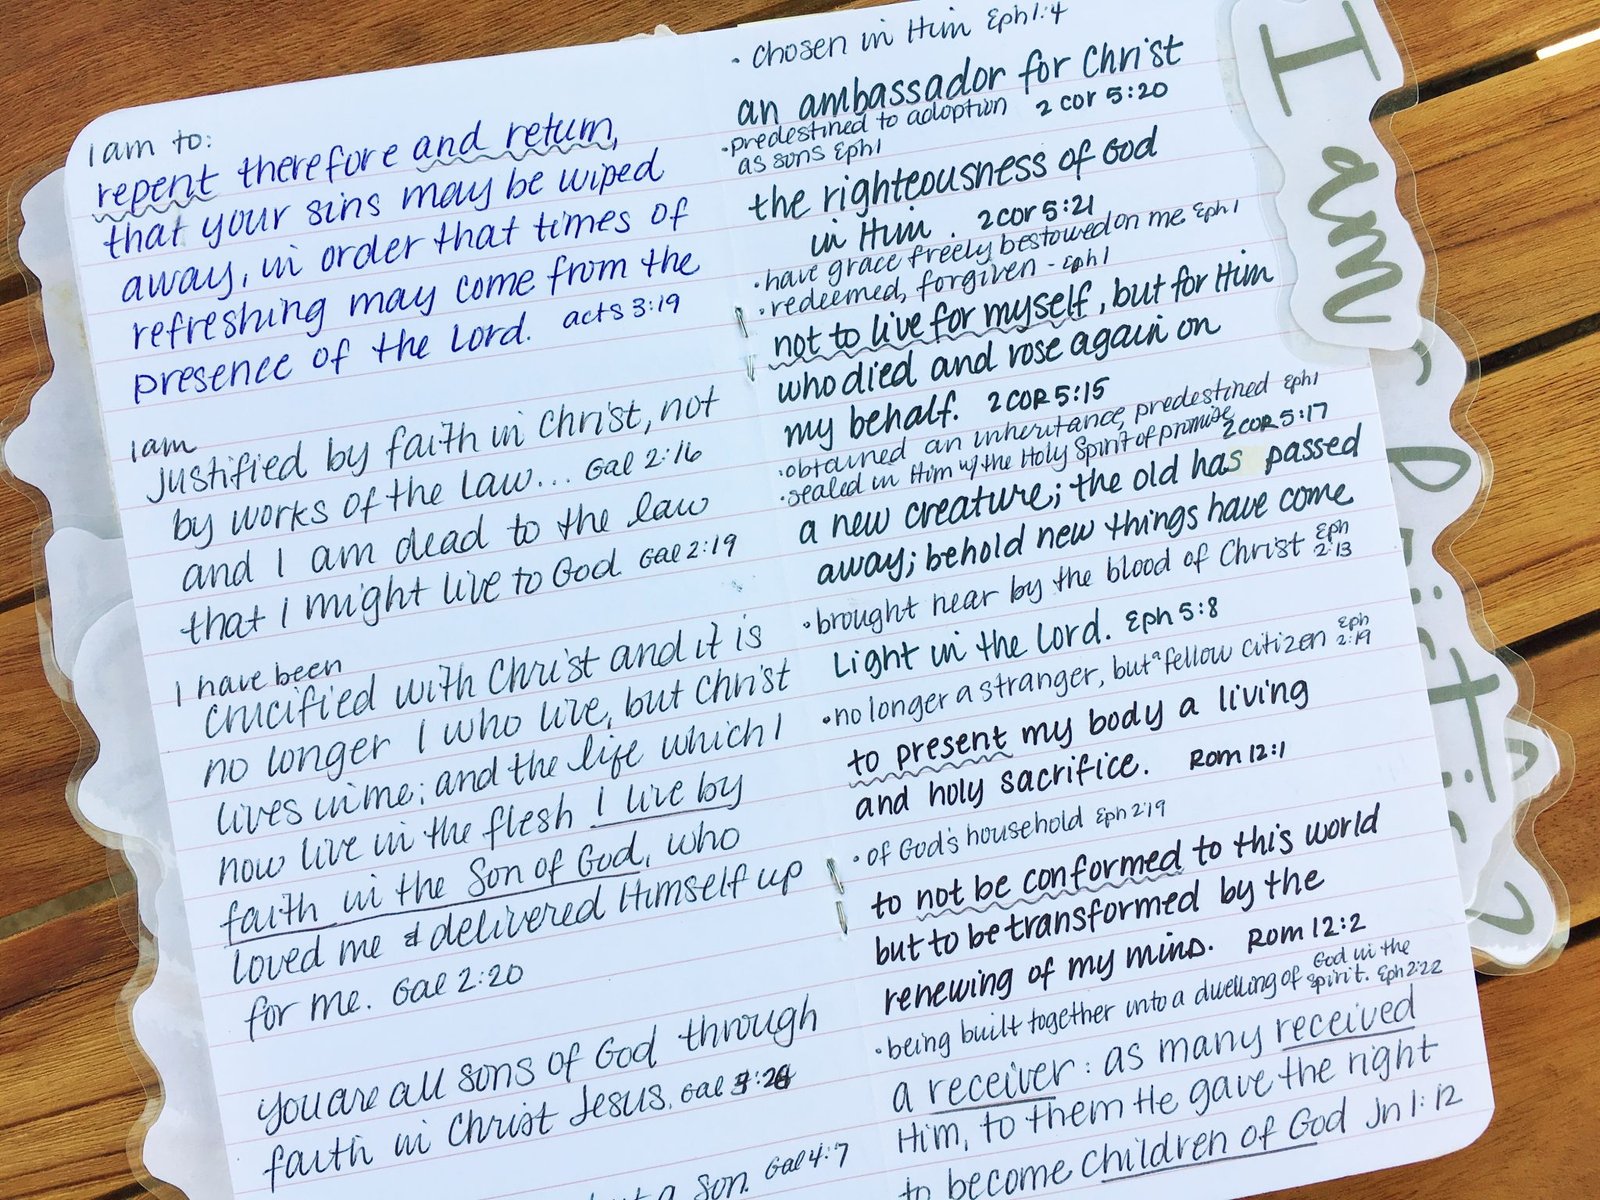 I am to:
repent therefore and return,
that your sins may be wiped
away, in order that times of
refreshing may come from the
presence of the Lord. acts 3:19
I am
justified by faith in Christ, not
by works of the Law... Gal 2:16
and I am dead to the law
that I might live to God Gal 2:19
I have been
crucified with Christ and it is
no longer I who live, but Christ
lives in me; and the life which I
now live in the flesh I live by
faith in the Son of God, who
loved me & delivered Himself up
for me. Gal 2:20
you are all sons of God through
faith in Christ Jesus. Gal
a son. Gal 4:7
• chosen in Him Eph 1:4
an ambassador for Christ
2 Cor 5:20
• predestined to adoption
as sons Eph 1
the righteousness of God
in Him. 2 Cor 5:21
• have grace freely bestowed on me Eph 1
• redeemed, forgiven - Eph 1
not to live for myself, but for Him
who died and rose again on
my behalf. 2 COR 5:15
• obtained an inheritance, predestined Eph 1
• sealed in Him w/ the Holy Spirit of promise
2 COR 5:17
a new creature; the old has passed
away; behold new things have come
• brought near by the blood of Christ Eph 2:13
Light in the Lord. Eph 5:8
• no longer a stranger, but a fellow citizen Eph 2:19
to present my body a living
and holy sacrifice. Rom 12:1
• of God's household Eph 2:19
to not be conformed to this world
but to be transformed by the
renewing of my mind. Rom 12:2
• being built together into a dwelling of God in the Spirit. Eph 2:22
a receiver: as many received
Him, to them He gave the right
to become children of God Jn 1:12
I am